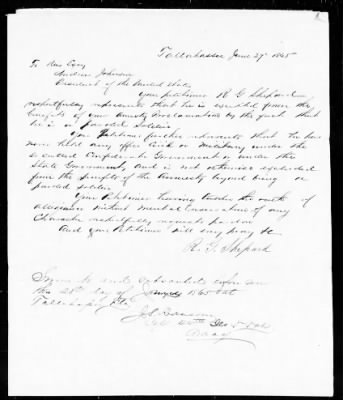 Tallahassee June 27th 1865
To His Excy
Andrew Johnson
President of the United States
Your petitioner R. G. Shepard
respectfully represents that he is excluded from the
benefits of your Amnesty Proclamation by the fact that
he is a paroled soldier
Your Petitioner further represents that he has
never held any office civil or military under the
so called Confederate Government or under the
State Government, and is not otherwise excluded
from the benefits of the Amnesty beyond being a
paroled soldier
Your Petitioner having taken the oath of
allegiance without mental reservation of any
Character respectfully requests pardon
And your Petitioner will ever pray &c
R. G. Shepard
Sworn to and subscribed before me
this 28th day of 1865 at
Tallahassee Fla